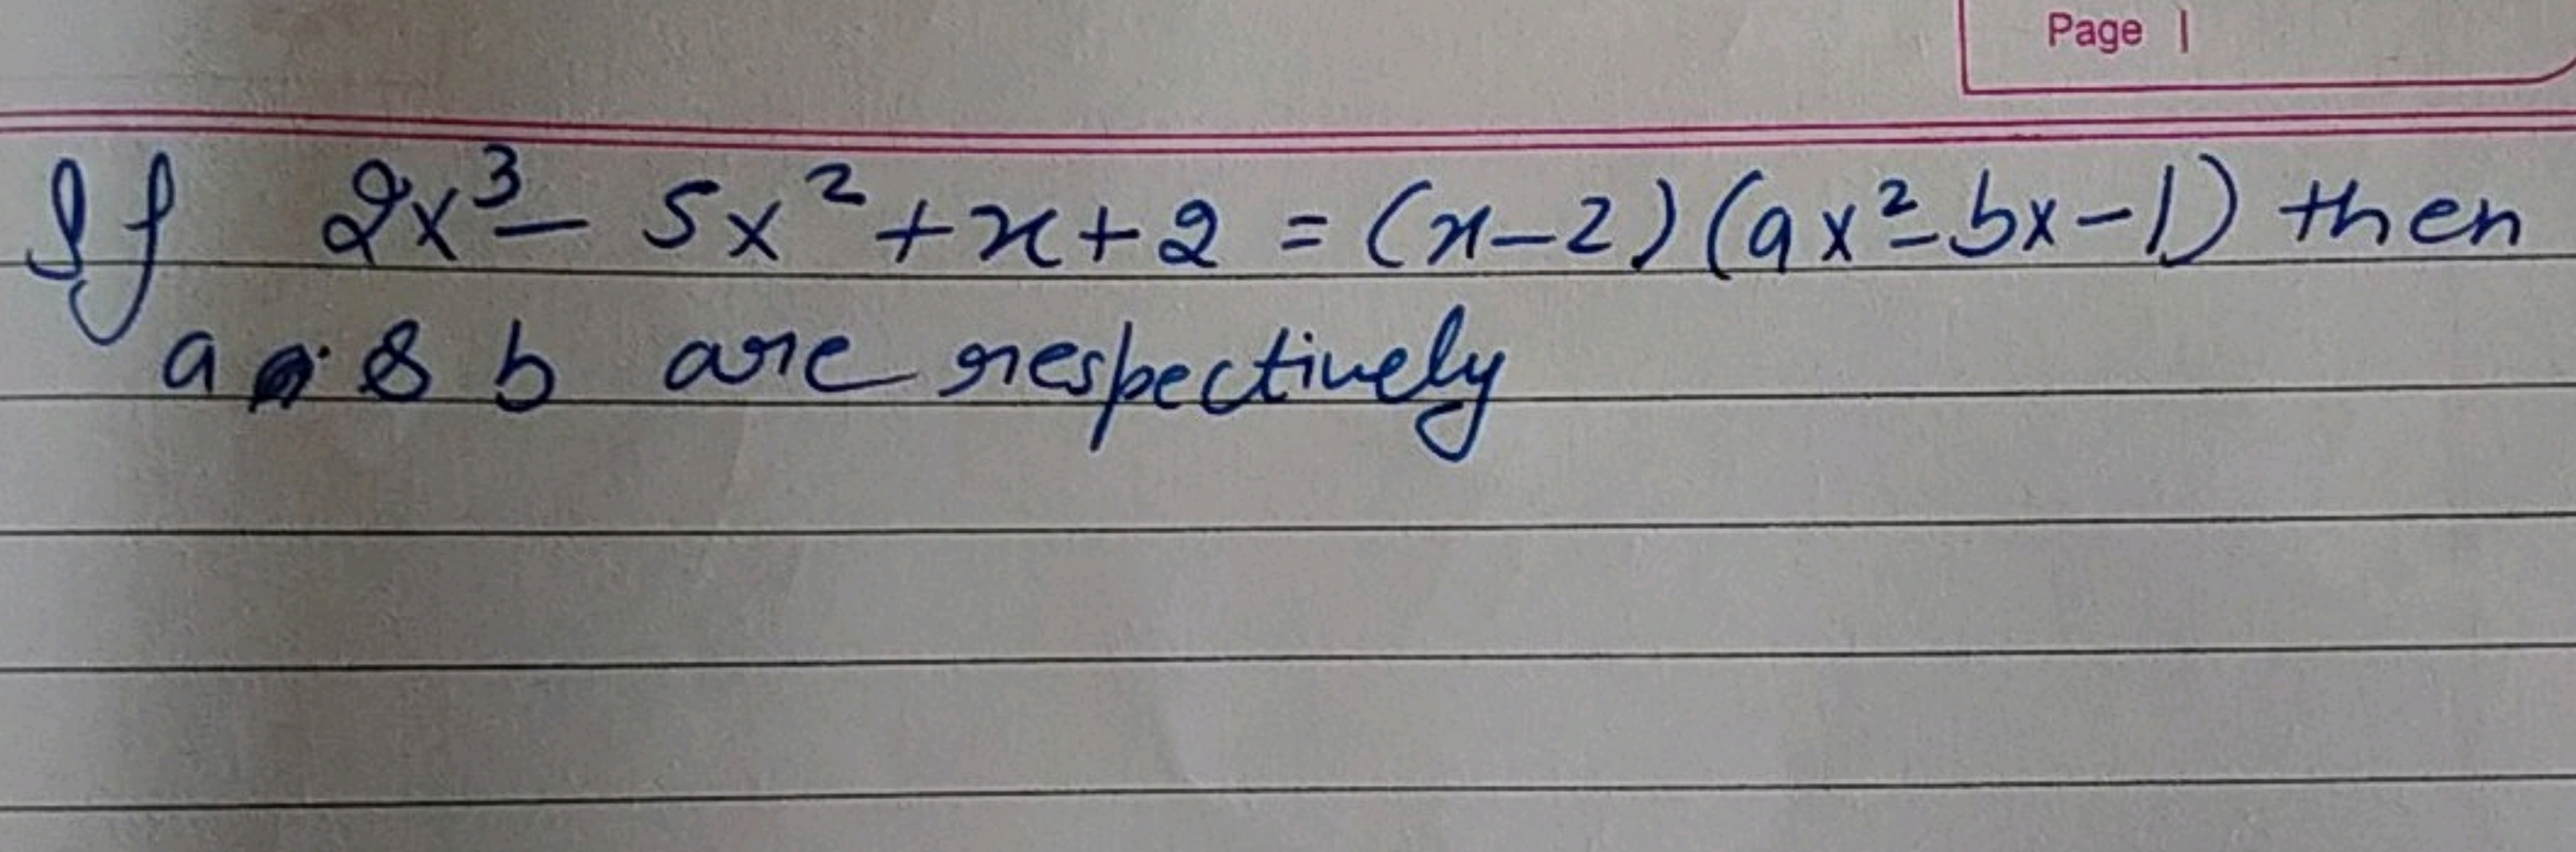 Page |
If 2x³ - 5x² + x + 2 = (x - 2) (ax² - bx - 1) then
a & b are respectively